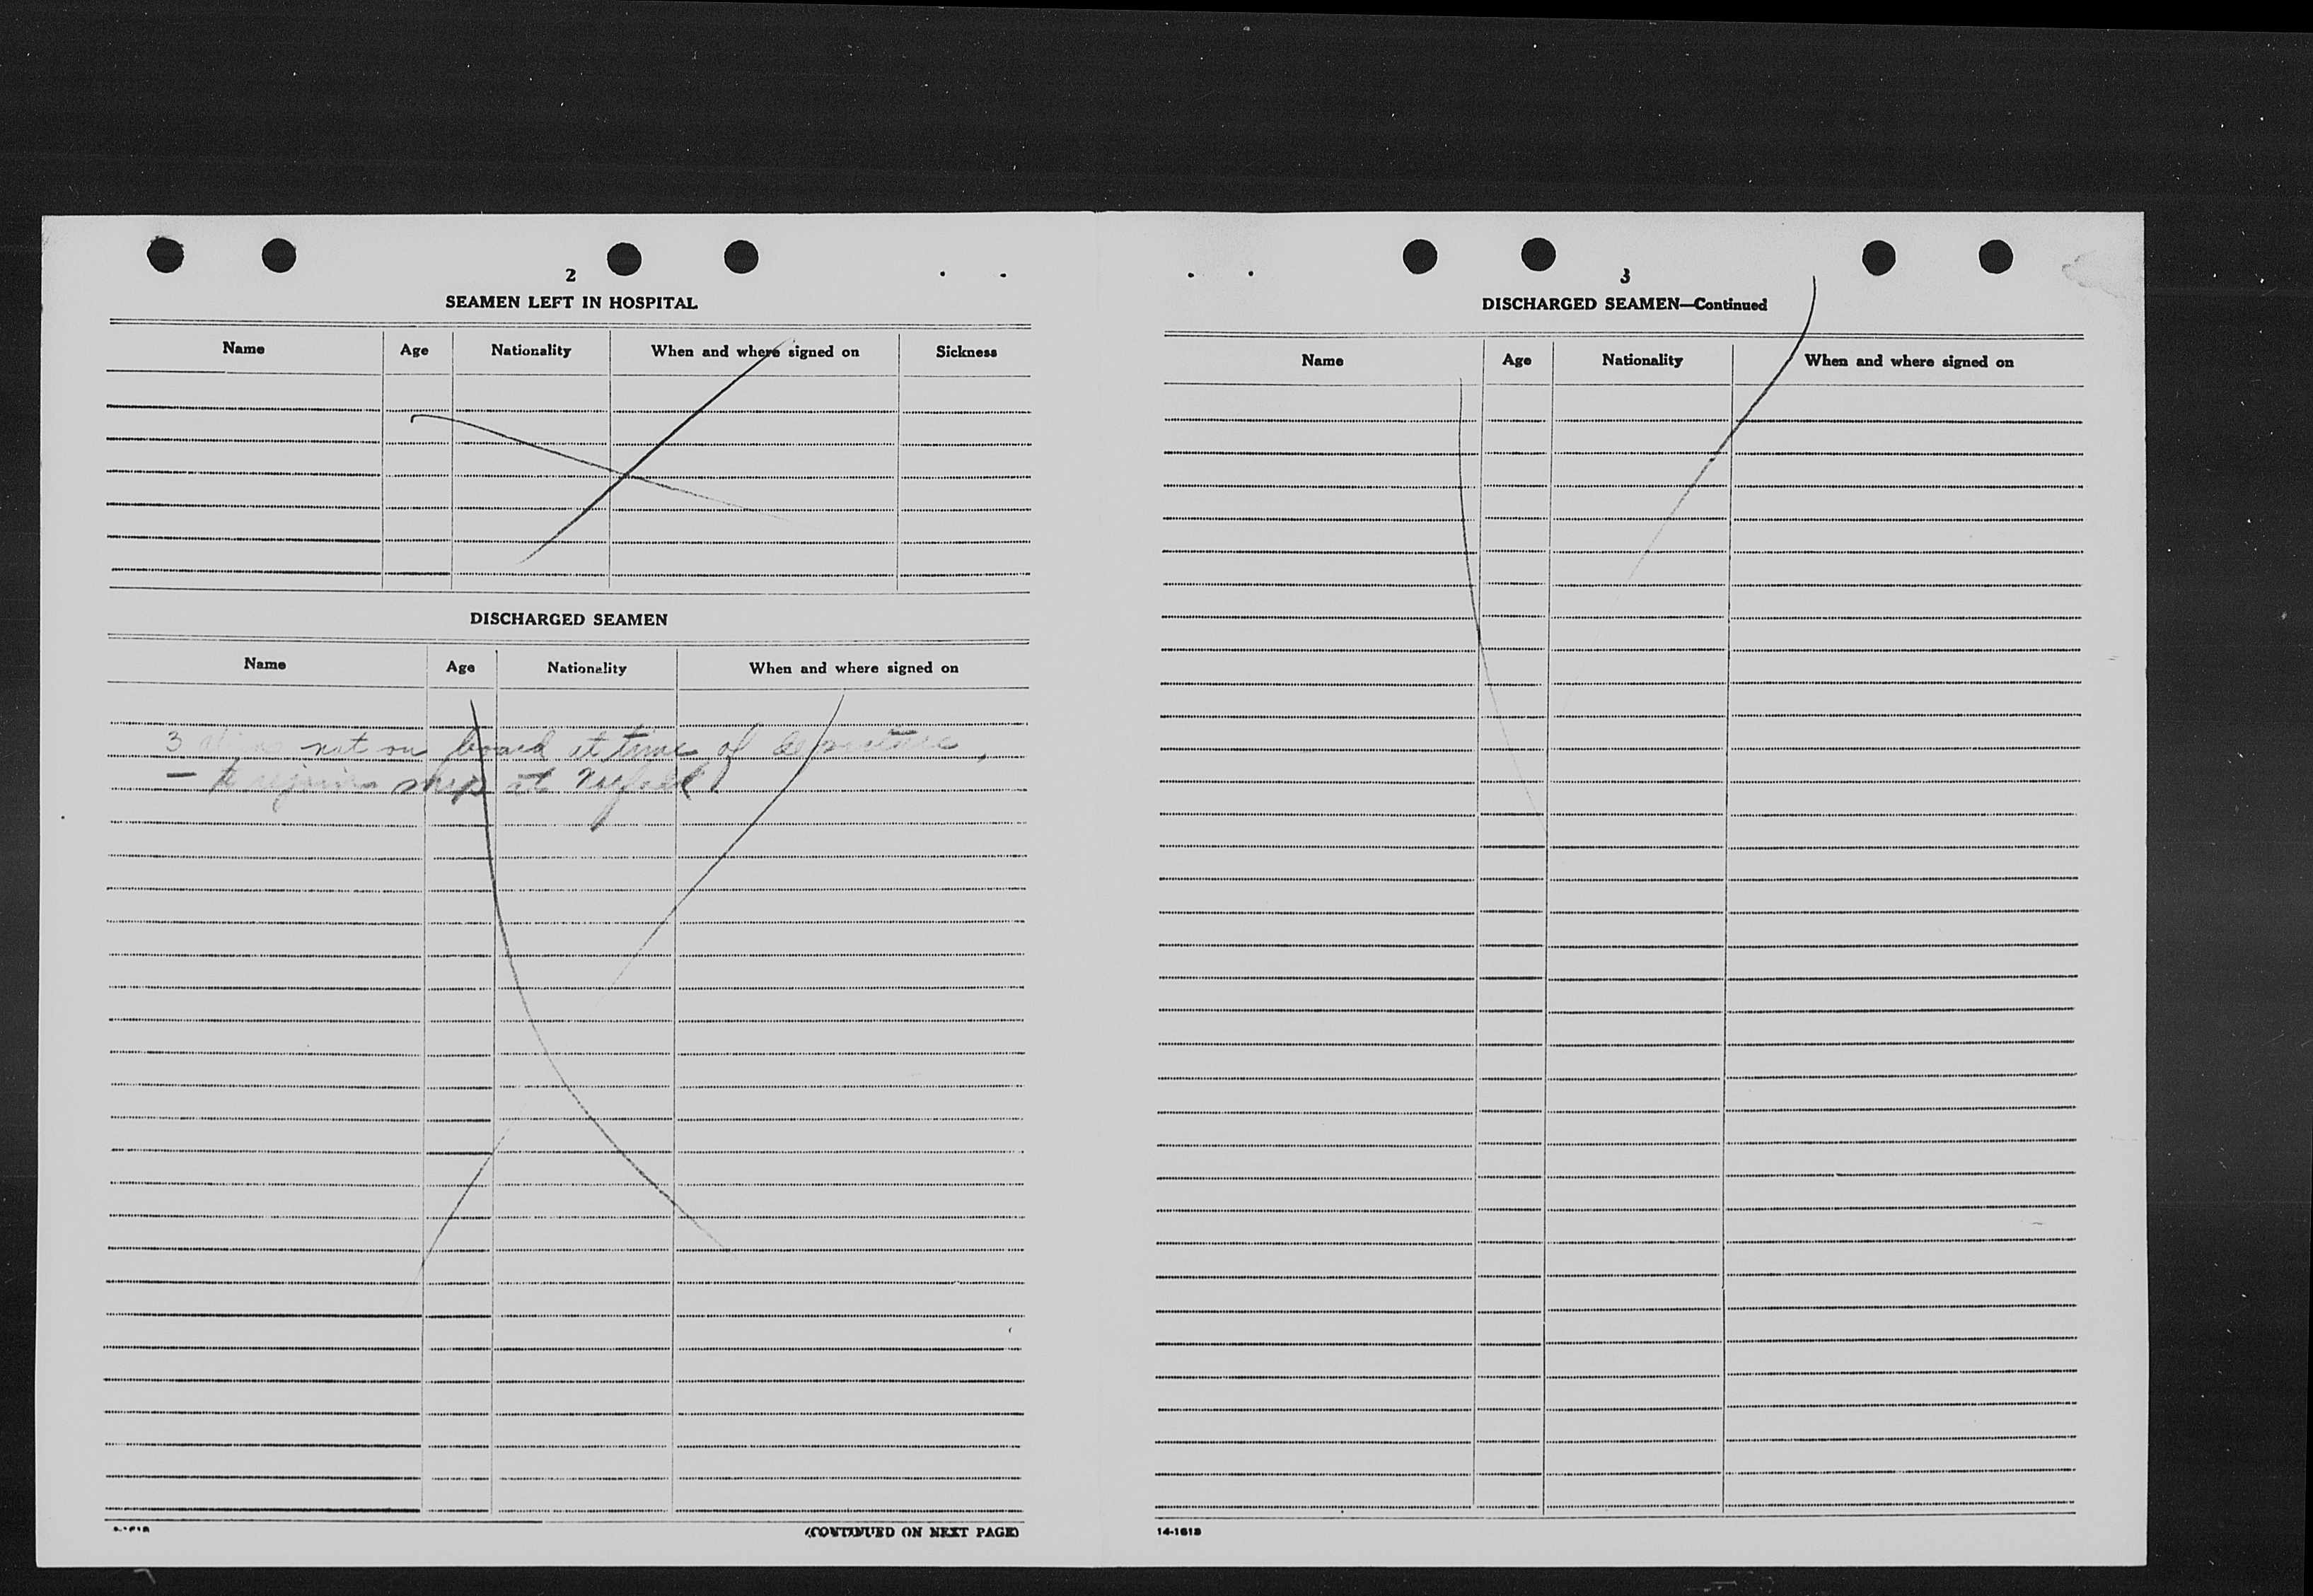 2
SEAMEN LEFT IN HOSPITAL
Name Age Nationality When and where signed on Sickness
DISCHARGED SEAMEN
Name Age Nationality When and where signed on
3 aliens not on board at time of departure,
— to rejoin ship at Norfolk)
(CONTINUED ON NEXT PAGE)
3
DISCHARGED SEAMEN—Continued
Name Age Nationality When and where signed on
14-1618